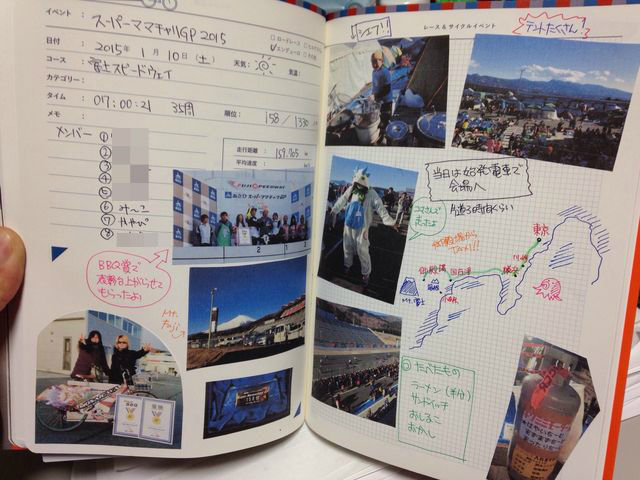 イベント：スーパーママチャリGP 2015
□ロードレース
日付：2015年 1月 10日（土）
天気：
気温：
☑エンデューロ
コース：富士スピードウェイ
カテゴリー：
タイム：07:00:21 35周
順位：158/1330
メモ：
メンバー
①
②
③
④
⑤
⑥ みーこ
⑦ けやぴ
⑧
走行距離：159.705
平均速度：
FUJI SPEEDWAY
2 1
BBQ賞で
表彰台上がらせて
もらったよ♪
Mt. Fuji
シェフ!!
レース & サイクルイベント
テントたくさん!
当日は始発電車で
会場へ
片道3時間くらい
TAXI!!
東京
川崎
御殿場
国府津
小田原
Mt.富士
箱根
たべたもの
ラーメン（半分）
サンドイッチ
おしるこ
おかし